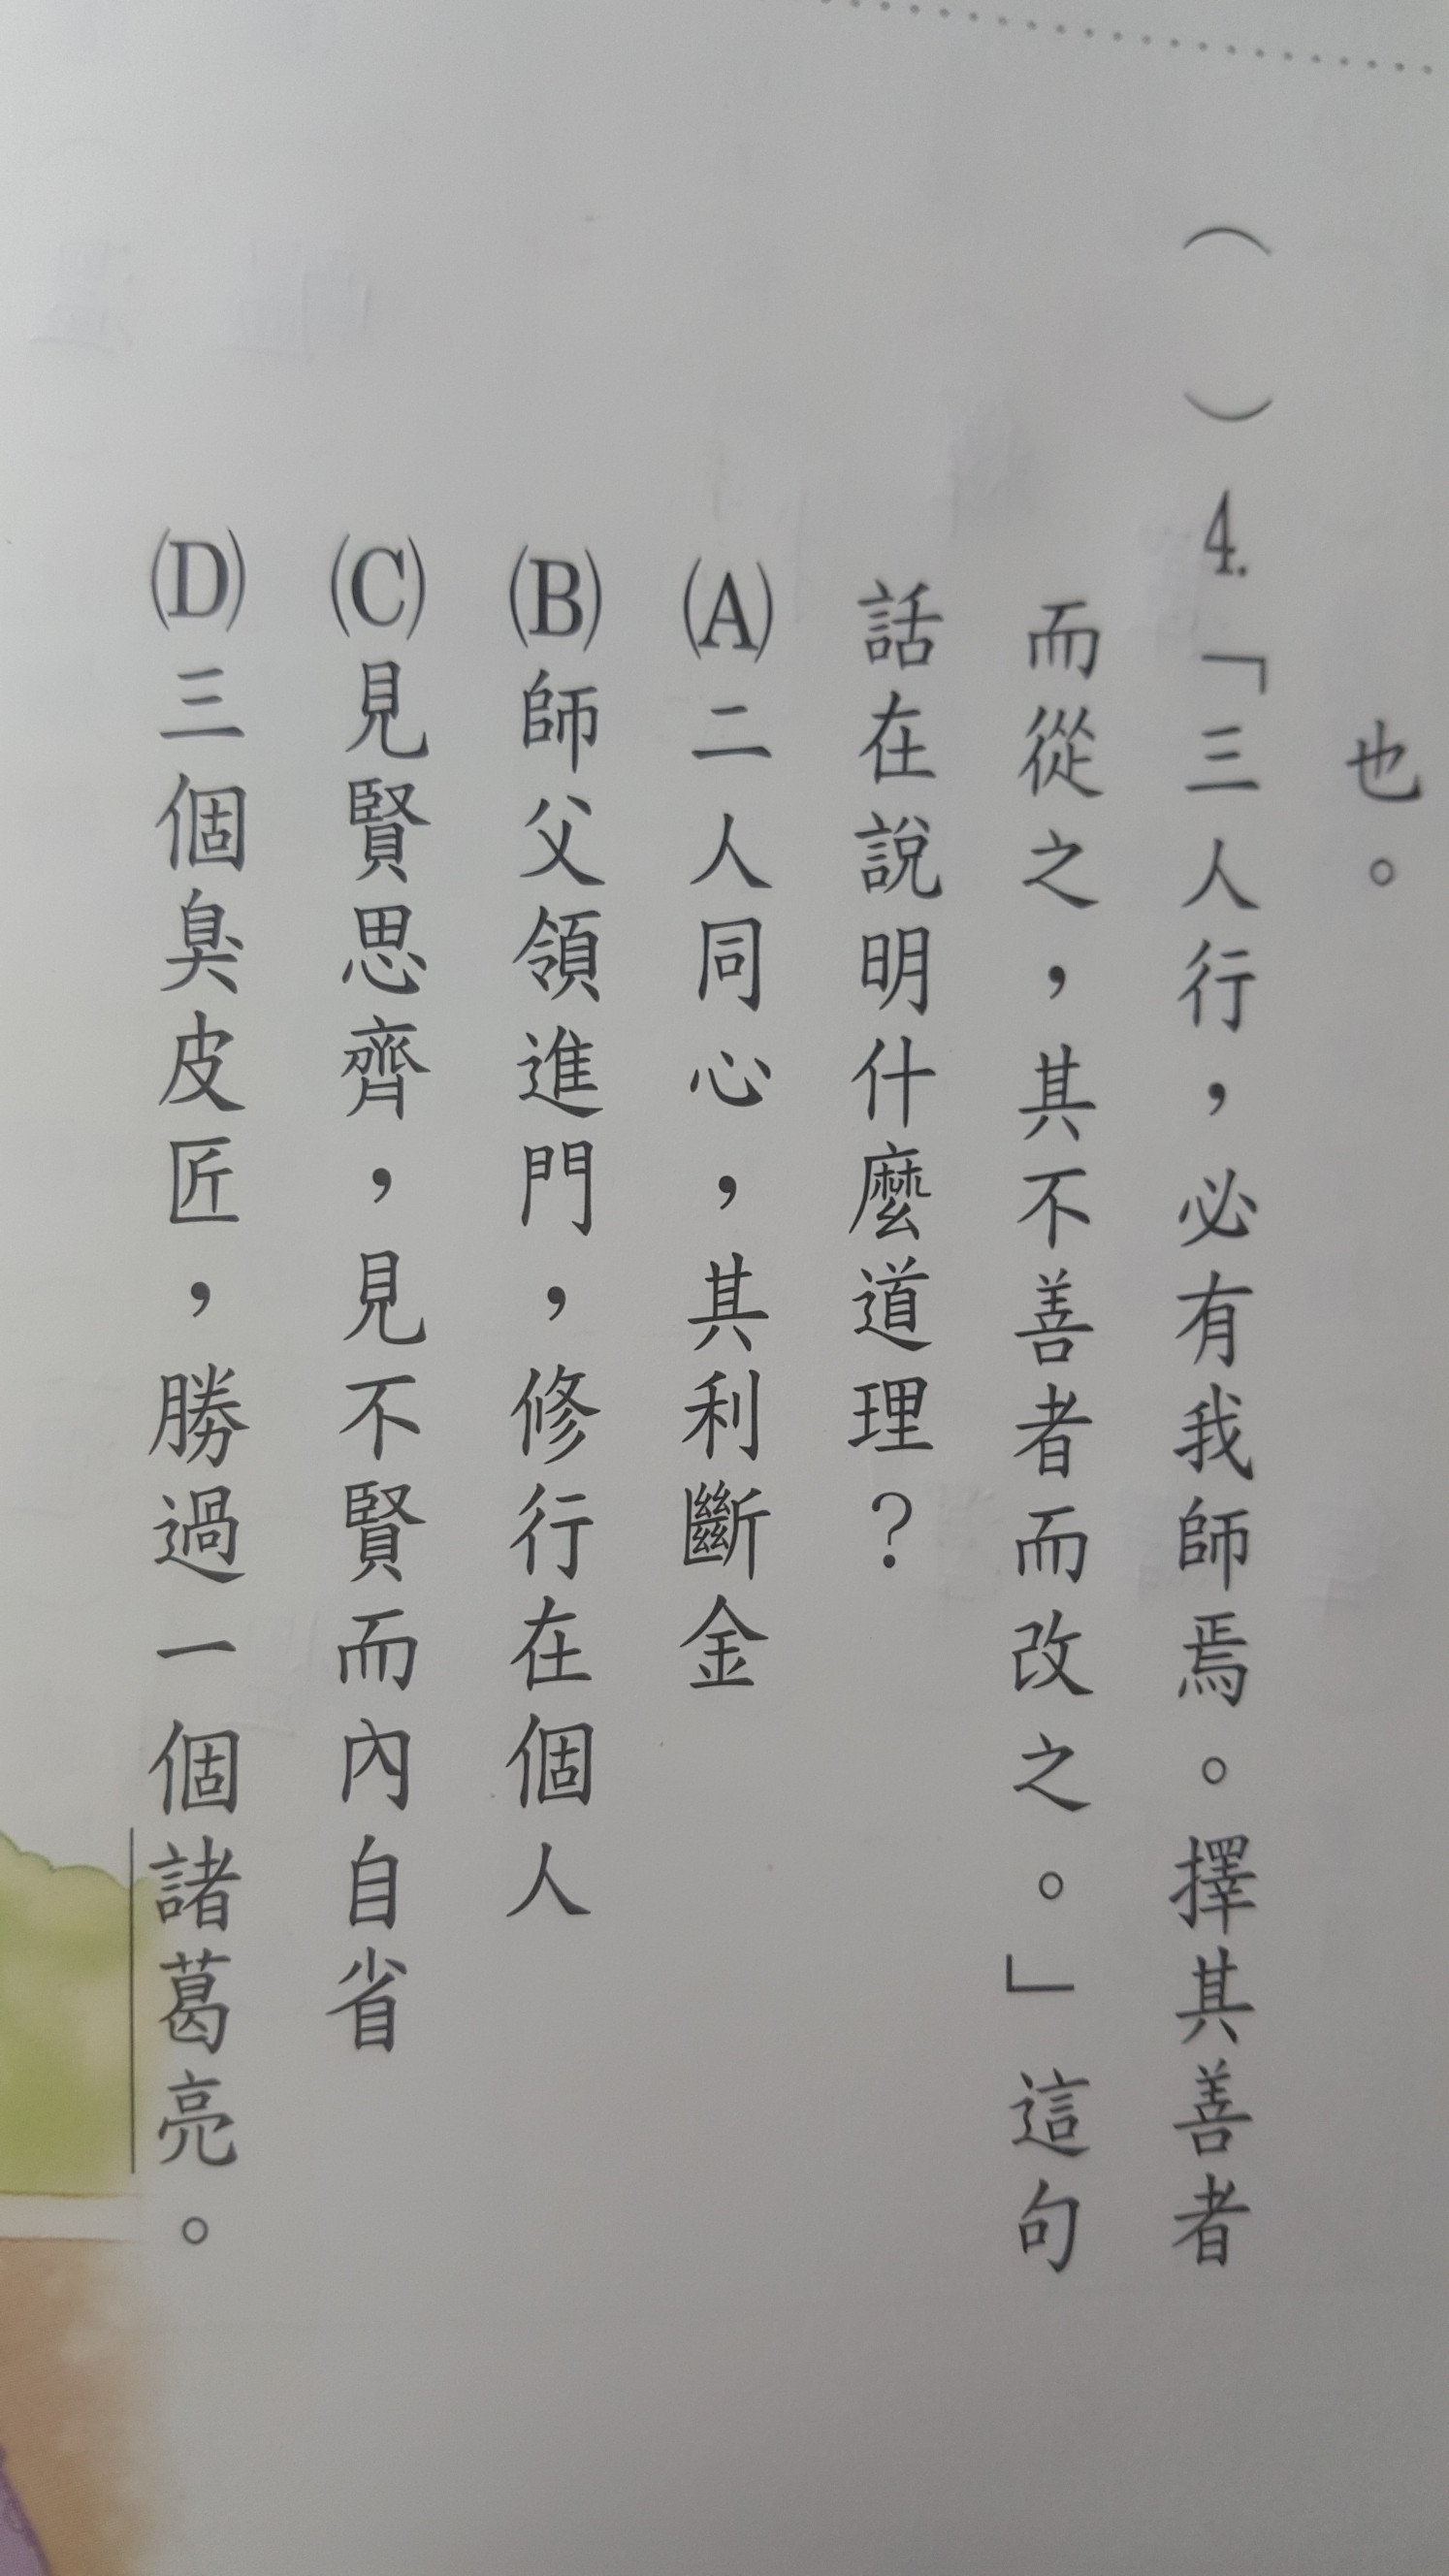 也。
（　）4.「三人行，必有我師焉。擇其善者
而從之，其不善者而改之。」這句
話在說明什麼道理？
(A)二人同心，其利斷金
(B)師父領進門，修行在個人
(C)見賢思齊，見不賢而內自省
(D)三個臭皮匠，勝過一個諸葛亮。